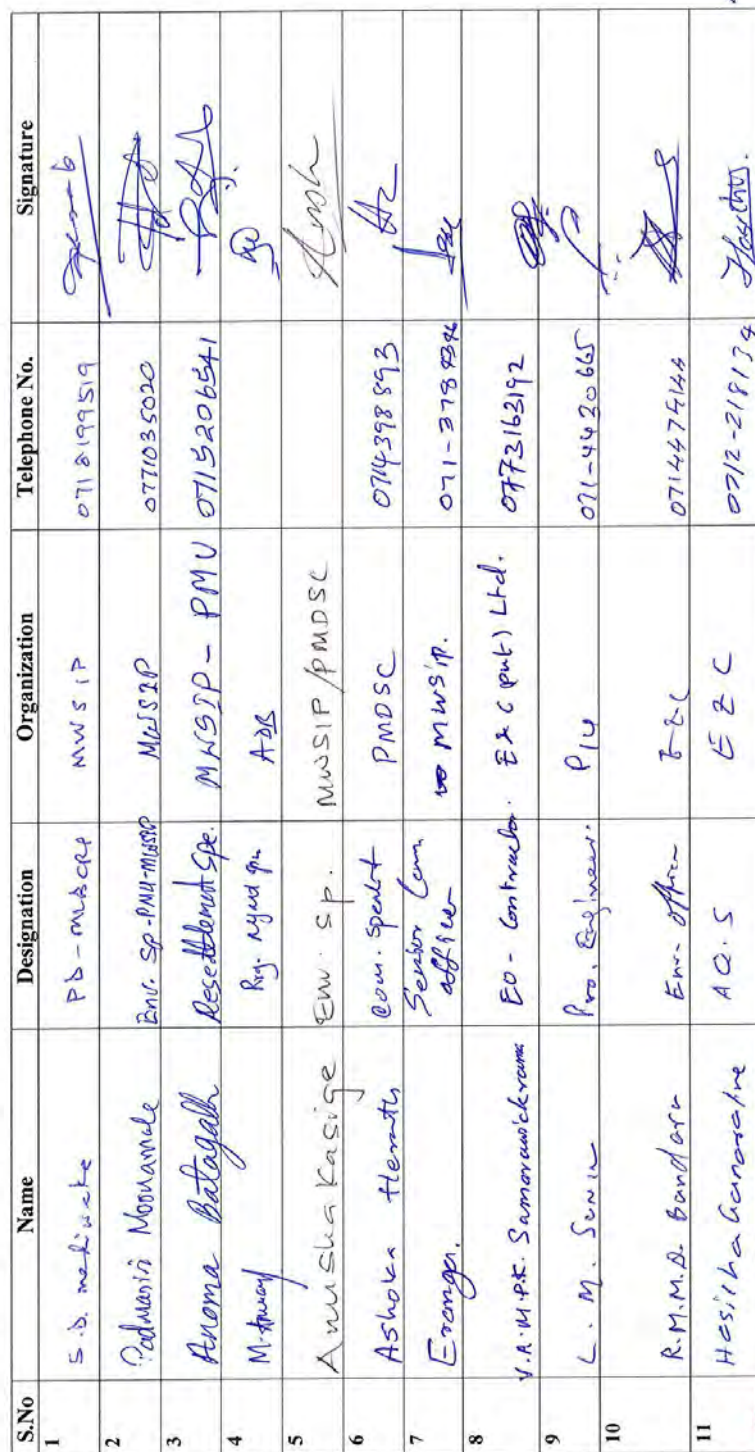 S.No Name Designation Organization Telephone No. Signature
1 S.D. mediwake PD- MWSIP 0718199519
2 Padmasiri Moonamale Env. Sp-PMU-MWSIP MWSIP 0771035020
3 Anoma Batagalla Resettlement Spe. MWSIP - PMU 0715206541
4 ADB
5 Anusha Kasige Env. Sp. MWSIP/PMDSC
6 Ashoka Herath Com. PMDSC 0714398893
7 Eranga. Senior Com officer MWSIP.
8 V.A.M.P.K. Samarawickrama EO - Contractor. E & C (pvt) Ltd. 0773163192
9 L. M. Sunil Pro. Engineer. PIU 071-4430665
10 R.M.M.D. Bandara Env. officer E&C
11 A Q.S E & C